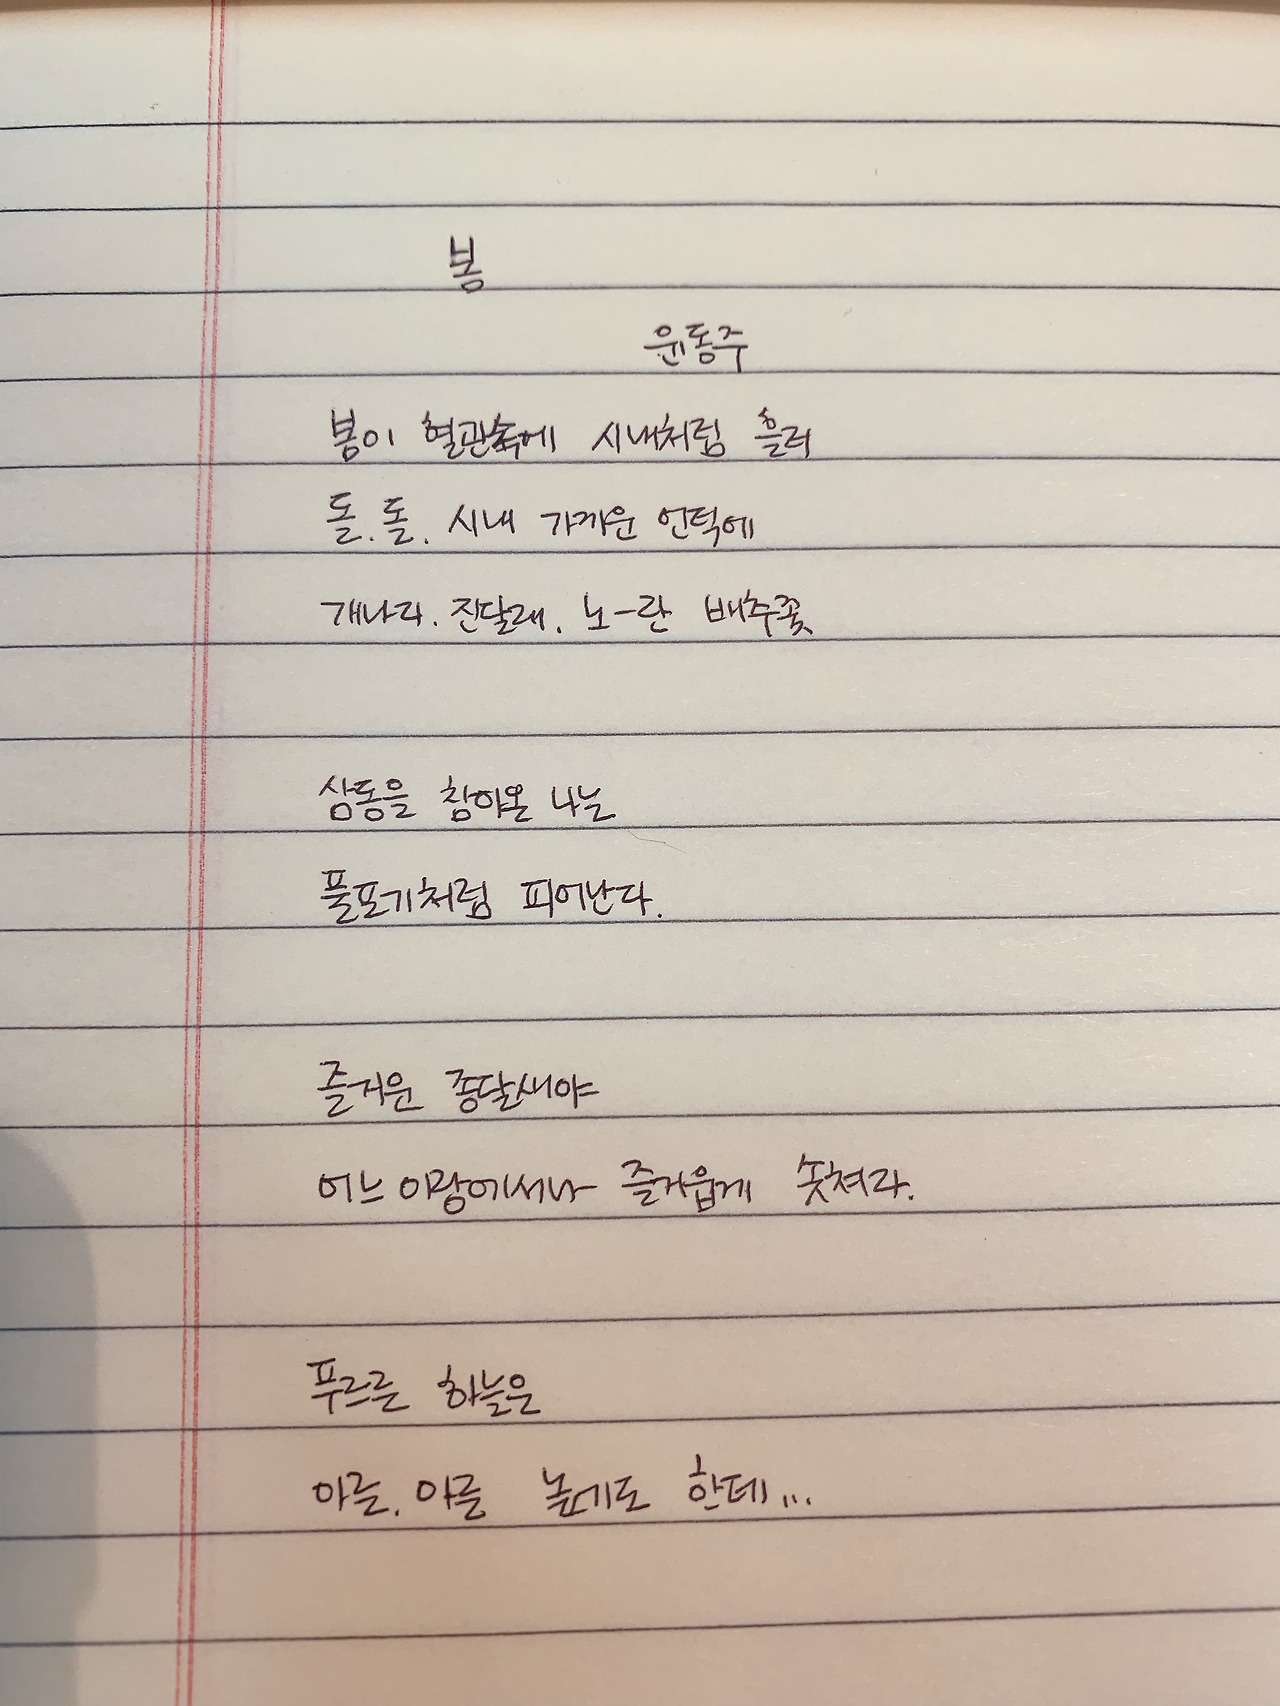 봄
윤동주
봄이 혈관속에 시내처럼 흘러
돌.돌. 시내 가까운 언덕에
개나리. 진달래. 노-란 배추꽃
삼동을 참아온 나는
풀포기처럼 피어난다.
즐거운 종달새야
어느 이랑에서나 즐거웁게 솟쳐라.
푸르른 하늘은
아른. 아른 높기도 한데...